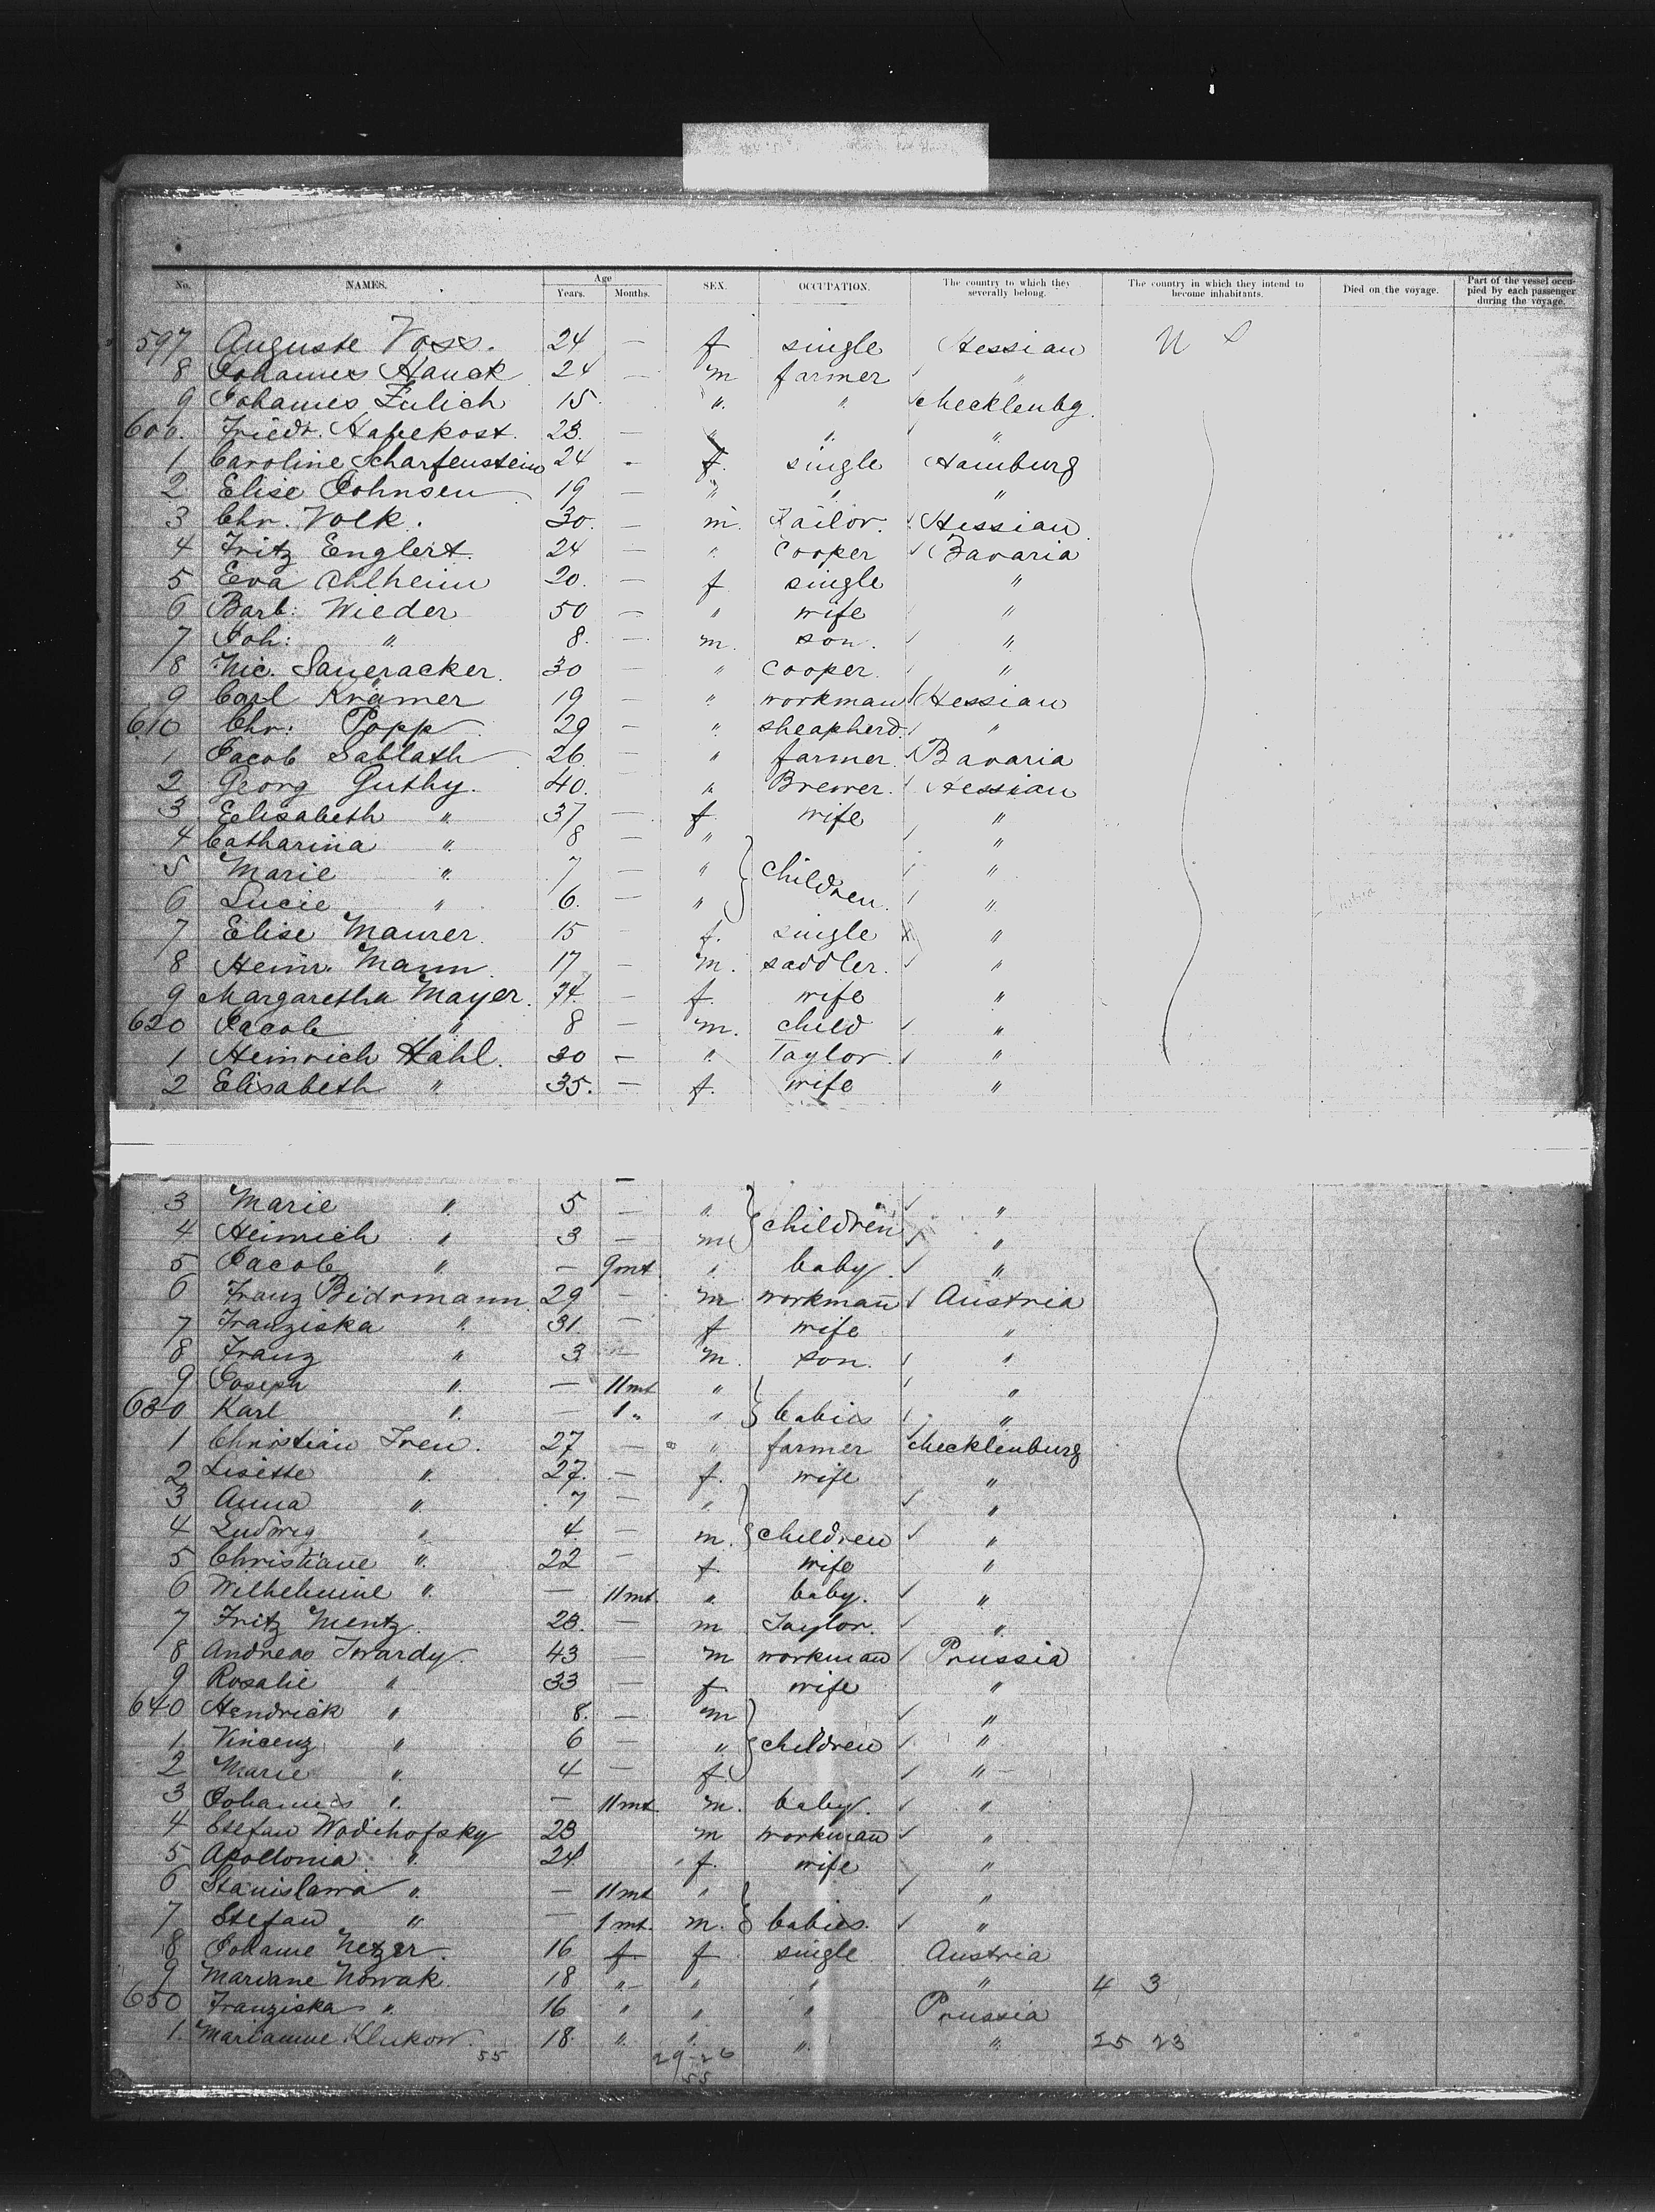 No. NAMES. Age Years. Months. SEX. OCCUPATION. The country to which they severally belong. The country in which they intend to become inhabitants. Died on the voyage. Part of the vessel occupied by each passenger during the voyage.
597 Auguste Voss. 24 — f single Hessian U S
8 Johannes Hauck 24 — m farmer "
9 Johannes Zulich 15. ". ". Mecklenbg.
600. Friedr. Hapekost. 23. — " ". ".
1 Caroline Scharfenstein 24 - f. single Hamburg
2 Elise Johnsen 19 — " ". "
3 Chr. Volk. 30. — m. Tailor. Hessian
4 Fritz Englert. 24 — " Cooper Bavaria
5 Eva Ahlheim 20. — f single "
6 Barb: Wieder 50 — " wife "
7 Joh: " 8. — m. son. "
8 Nic. Saueracker. 30 — " cooper. "
9 Carl Krämer 19 — " workman Hessian
610 Chr: Popp 29 — ". sheapherd. "
1 Jacob Sablath 26. — " farmer. Bavaria
2 Georg Guthy. 40. — " Brewer. Hessian
3 Eelisabeth " 37 — f. wife "
4 Catharina ". 8 — " "
5 Marie ". 7 — " children "
6 Lucie " 6. — " ".
7 Elise Maurer. 15 — f. single "
8 Heinr. Mann. 17 — m. saddler. "
9 Margaretha Mayer. 34. — f. wife "
620 Jacob " 8 — m. child "
1 Heinrich Hahl. 30 — " Taylor "
2 Elisabeth ". 35. — f. wife "
3 Marie ". 5 — " children "
4 Heinrich " 3 — m "
5 Jacob ". — 9mt. " baby. "
6 Franz Bidrmann. 29 — m workman Austria
7 Franziska ". 31. — f wife "
8 Franz " 3 — m. son. "
9 Joseph ". — 11mt. " "
630 Karl ". — 1 " " babies "
1 Christian Iren. 27 — " farmer Mecklenburg
2 Lisette ". 27. — f. wife "
3 Anna ". 7 — " "
4 Ludwig " 4. — m. children "
5 Christiane ". 22 — f. wife "
6 Wilhelmine ". — 11mt. ". baby. "
7 Fritz Mentz. 23. — m Taylor. ".
8 Andreas Twardy. 43 — m workman Prussia
9 Rosalie " 33 — f wife "
640 Hendrick " 8. — m "
1 Vincenz " 6 — " children "
2 Marie ". 4 — f. "
3 Johannes ". — 11mt. m. baby. "
4 Stefan Wodihofsky 23 m workman "
5 Apollonia ". 24 f. wife "
6 Stanislawa ". — 11mt " "
7 Stefan " — 1mt. m. babies. "
8 Johanne Netzer 16 f f single Austria
9 Mariane Nowak. 18 " " " " 4 3
650 Franziska ". 16 " " " Prussia
1. Marianne Klukow. 18. ". ". ". ". 25 23
55 29-26
55